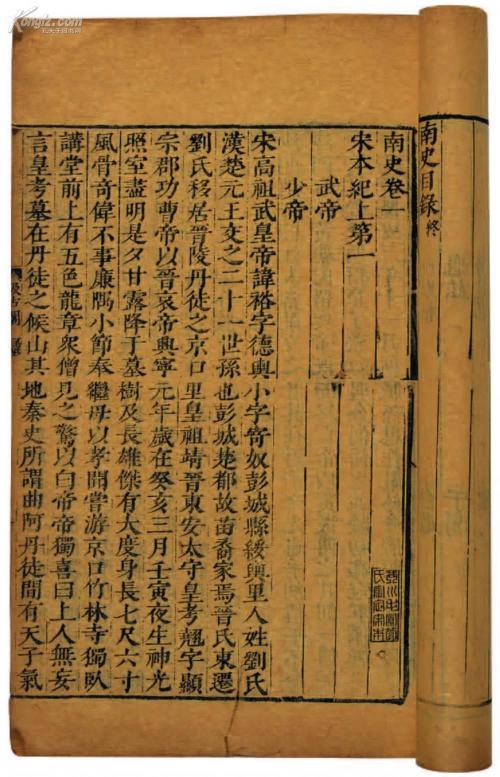 南史目錄終
南史卷一
宋本紀上第一
武帝
少帝
宋高祖武皇帝諱裕字德輿小字寄奴彭城縣綏輿里人姓劉氏
漢楚元王交之二十一世孫也彭城楚都故苗裔家焉晉氏東遷
劉氏移居晉陵丹徒之京口里皇祖靖晉東安太守皇考翹字顯
宗郡功曹帝以晉哀帝興寧元年歲在癸亥三月壬寅夜生神光
照室盡明是夕甘露降于墓樹及長雄傑有大度身長七尺六寸
風骨奇偉不事廉隅小節奉繼母以孝聞嘗游京口竹林寺獨臥
講堂前上有五色龍章衆僧見之驚以白帝帝獨喜曰上人無妄
言皇考墓在丹徒之候山其地秦史所謂曲阿丹徒間有天子氣
Kongfz.com
孔夫子旧书网